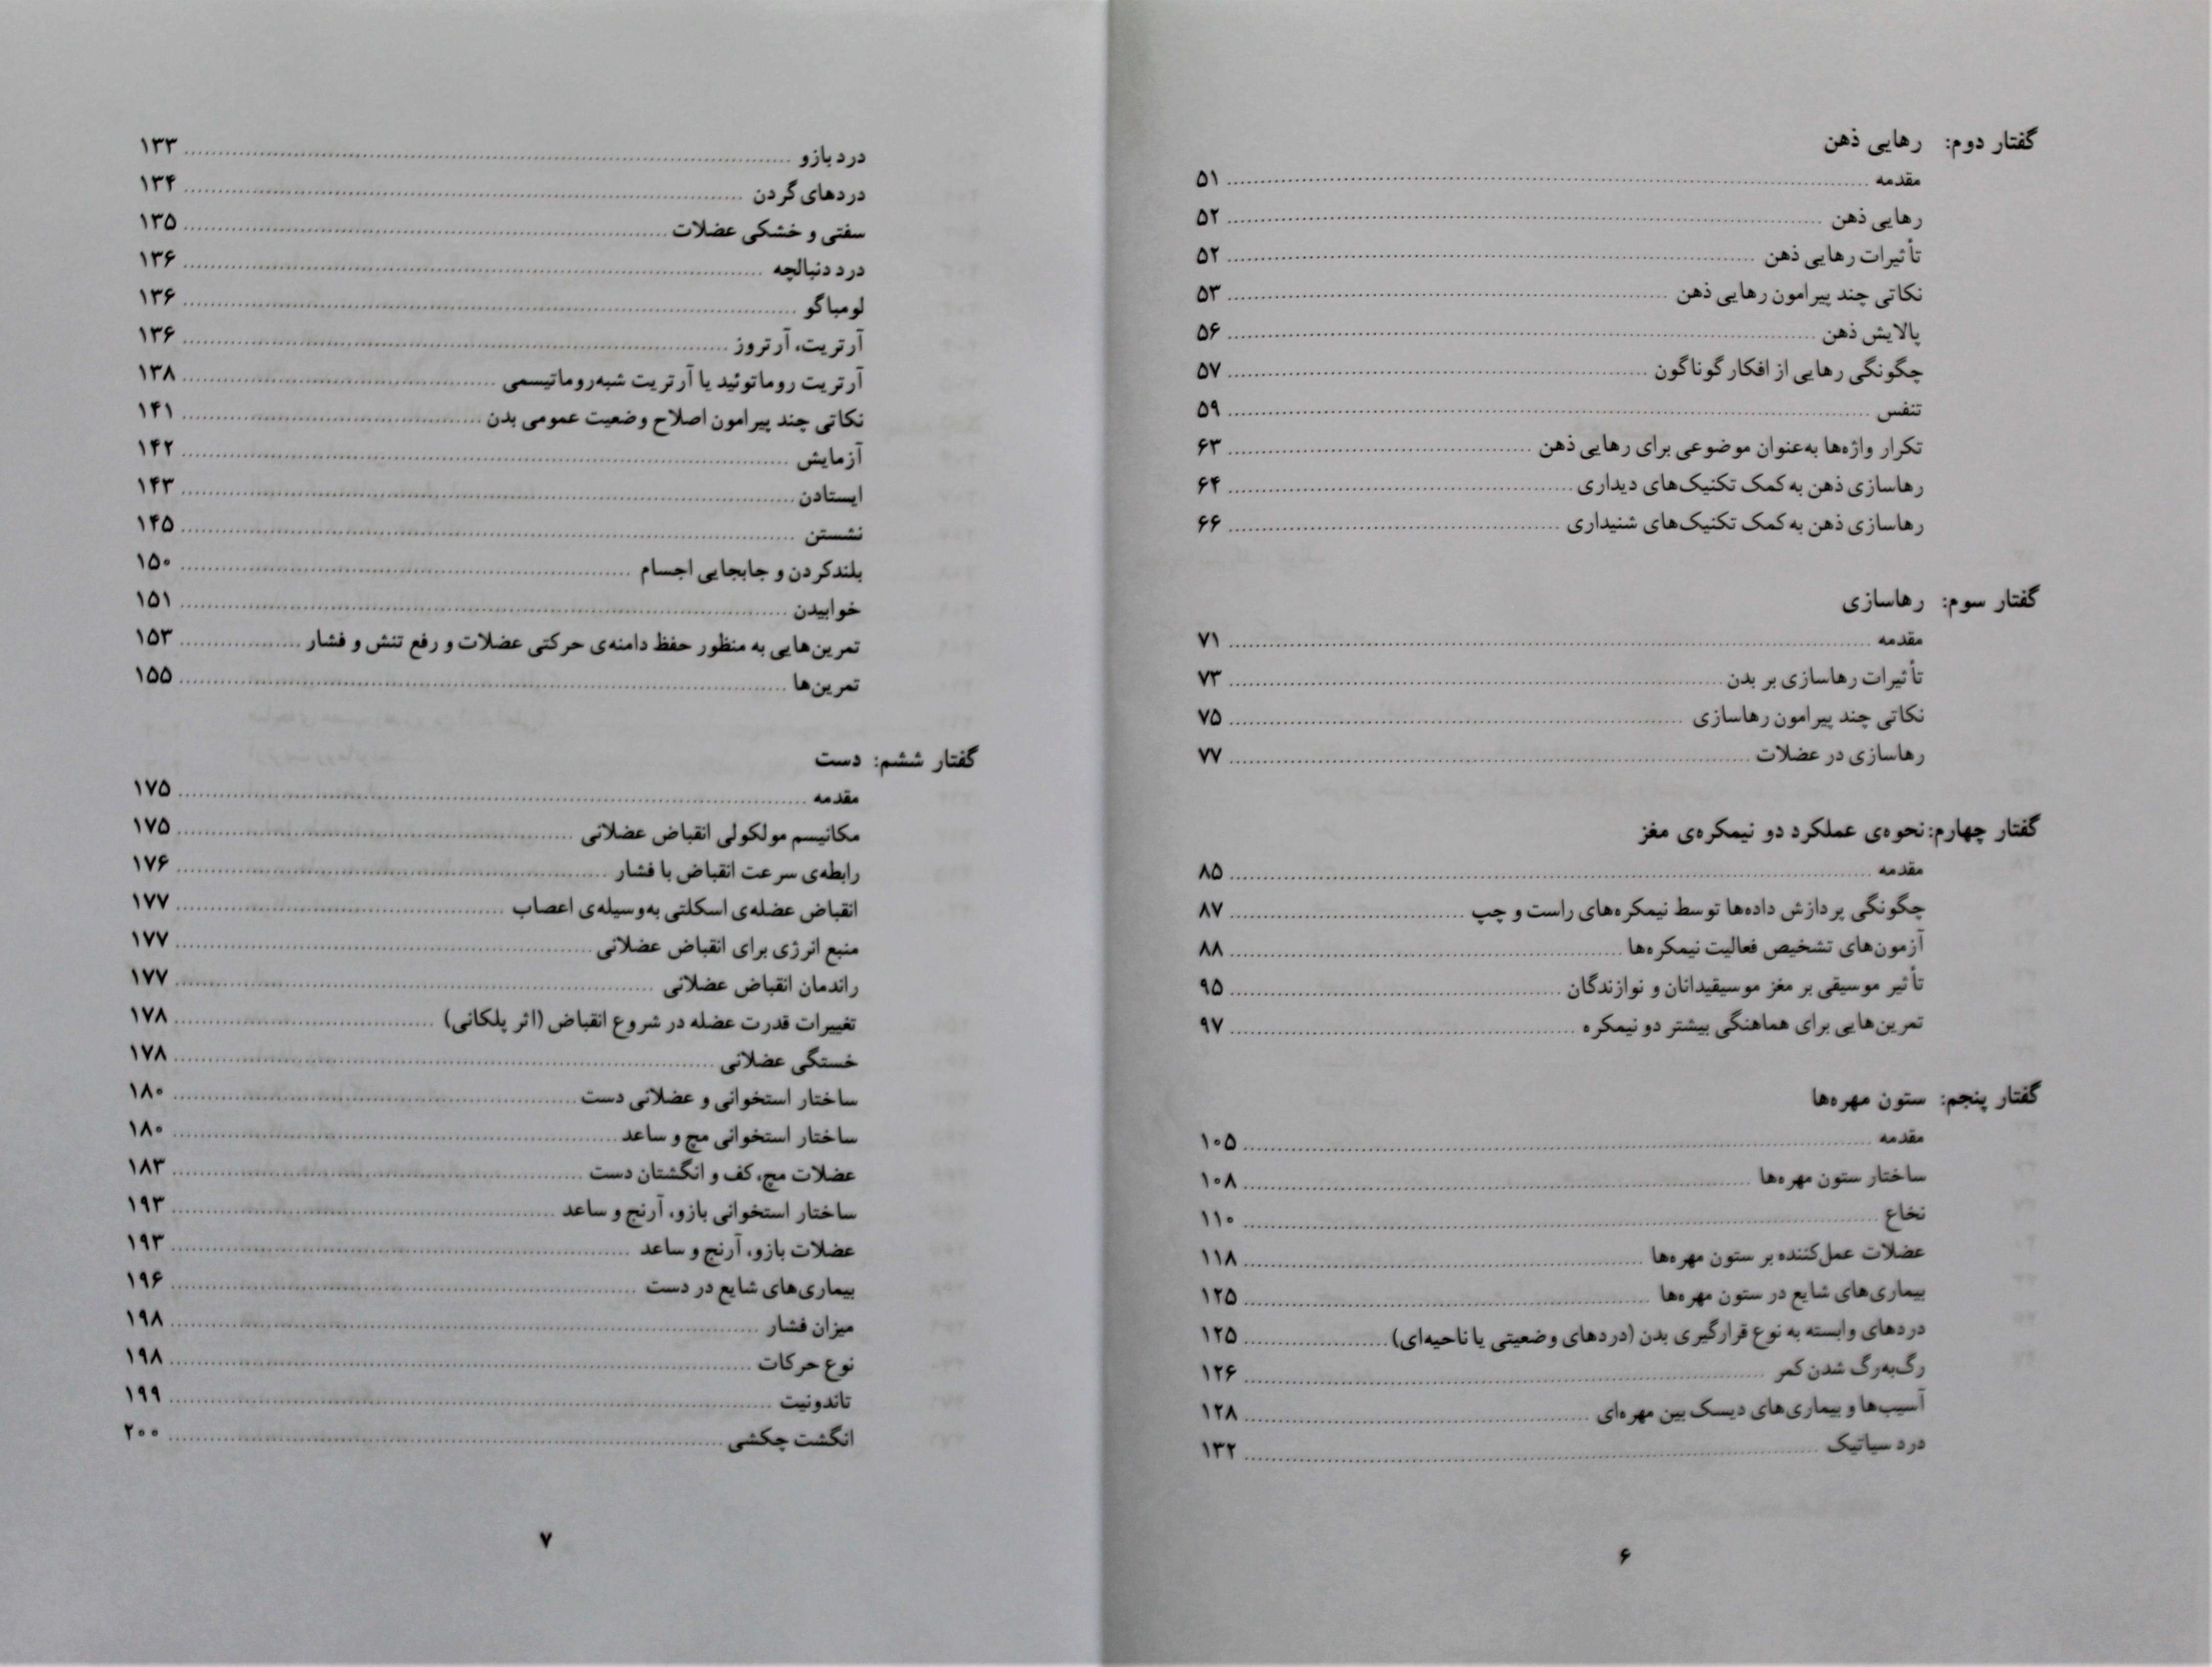 گفتار دوم: رهایی ذهن
مقدمه ..... ۵۱
رهایی ذهن ..... ۵۲
تأثیرات رهایی ذهن ..... ۵۲
نکاتی چند پیرامون رهایی ذهن ..... ۵۳
پالایش ذهن ..... ۵۶
چگونگی رهایی از افکار گوناگون ..... ۵۷
تنفس ..... ۵۹
تکرار واژه‌ها به‌عنوان موضوعی برای رهایی ذهن ..... ۶۳
رهاسازی ذهن به کمک تکنیک‌های دیداری ..... ۶۴
رهاسازی ذهن به کمک تکنیک‌های شنیداری ..... ۶۶
گفتار سوم: رهاسازی
مقدمه ..... ۷۱
تأثیرات رهاسازی بر بدن ..... ۷۳
نکاتی چند پیرامون رهاسازی ..... ۷۵
رهاسازی در عضلات ..... ۷۷
گفتار چهارم: نحوه‌ی عملکرد دو نیمکره‌ی مغز
مقدمه ..... ۸۵
چگونگی پردازش داده‌ها توسط نیمکره‌های راست و چپ ..... ۸۷
آزمون‌های تشخیص فعالیت نیمکره‌ها ..... ۸۸
تأثیر موسیقی بر مغز موسیقیدانان و نوازندگان ..... ۹۵
تمرین‌هایی برای هماهنگی بیشتر دو نیمکره ..... ۹۷
گفتار پنجم: ستون مهره‌ها
مقدمه ..... ۱۰۵
ساختار ستون مهره‌ها ..... ۱۰۸
نخاع ..... ۱۱۰
عضلات عمل‌کننده بر ستون مهره‌ها ..... ۱۱۸
بیماری‌های شایع در ستون مهره‌ها ..... ۱۲۵
دردهای وابسته به نوع قرارگیری بدن (دردهای وضعیتی یا ناحیه‌ای) ..... ۱۲۵
رگ‌به‌رگ شدن کمر ..... ۱۲۶
آسیب‌ها و بیماری‌های دیسک بین مهره‌ای ..... ۱۲۸
درد سیاتیک ..... ۱۳۲
۶
درد بازو ..... ۱۳۳
دردهای گردن ..... ۱۳۴
سفتی و خشکی عضلات ..... ۱۳۵
درد دنبالچه ..... ۱۳۶
لومباگو ..... ۱۳۶
آرتریت، آرتروز ..... ۱۳۶
آرتریت روماتوئید یا آرتریت شبه‌روماتیسمی ..... ۱۳۸
نکاتی چند پیرامون اصلاح وضعیت عمومی بدن ..... ۱۴۱
آزمایش ..... ۱۴۲
ایستادن ..... ۱۴۳
نشستن ..... ۱۴۵
بلندکردن و جابجایی اجسام ..... ۱۵۰
خوابیدن ..... ۱۵۱
تمرین‌هایی به منظور حفظ دامنه‌ی حرکتی عضلات و رفع تنش و فشار ..... ۱۵۳
تمرین‌ها ..... ۱۵۵
گفتار ششم: دست
مقدمه ..... ۱۷۵
مکانیسم مولکولی انقباض عضلانی ..... ۱۷۵
رابطه‌ی سرعت انقباض با فشار ..... ۱۷۶
انقباض عضله‌ی اسکلتی به‌وسیله‌ی اعصاب ..... ۱۷۷
منبع انرژی برای انقباض عضلانی ..... ۱۷۷
راندمان انقباض عضلانی ..... ۱۷۷
تغییرات قدرت عضله در شروع انقباض (اثر پلکانی) ..... ۱۷۸
خستگی عضلانی ..... ۱۷۸
ساختار استخوانی و عضلانی دست ..... ۱۸۰
ساختار استخوانی مچ و ساعد ..... ۱۸۰
عضلات مچ، کف و انگشتان دست ..... ۱۸۳
ساختار استخوانی بازو، آرنج و ساعد ..... ۱۹۳
عضلات بازو، آرنج و ساعد ..... ۱۹۳
بیماری‌های شایع در دست ..... ۱۹۶
میزان فشار ..... ۱۹۸
نوع حرکات ..... ۱۹۸
تاندونیت ..... ۱۹۹
انگشت چکشی ..... ۲۰۰
۷